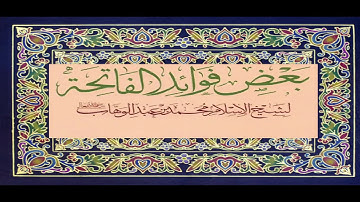 بعض فوائد الفاتحة
لشيخ الإسلام محمد بن عبد الوهاب